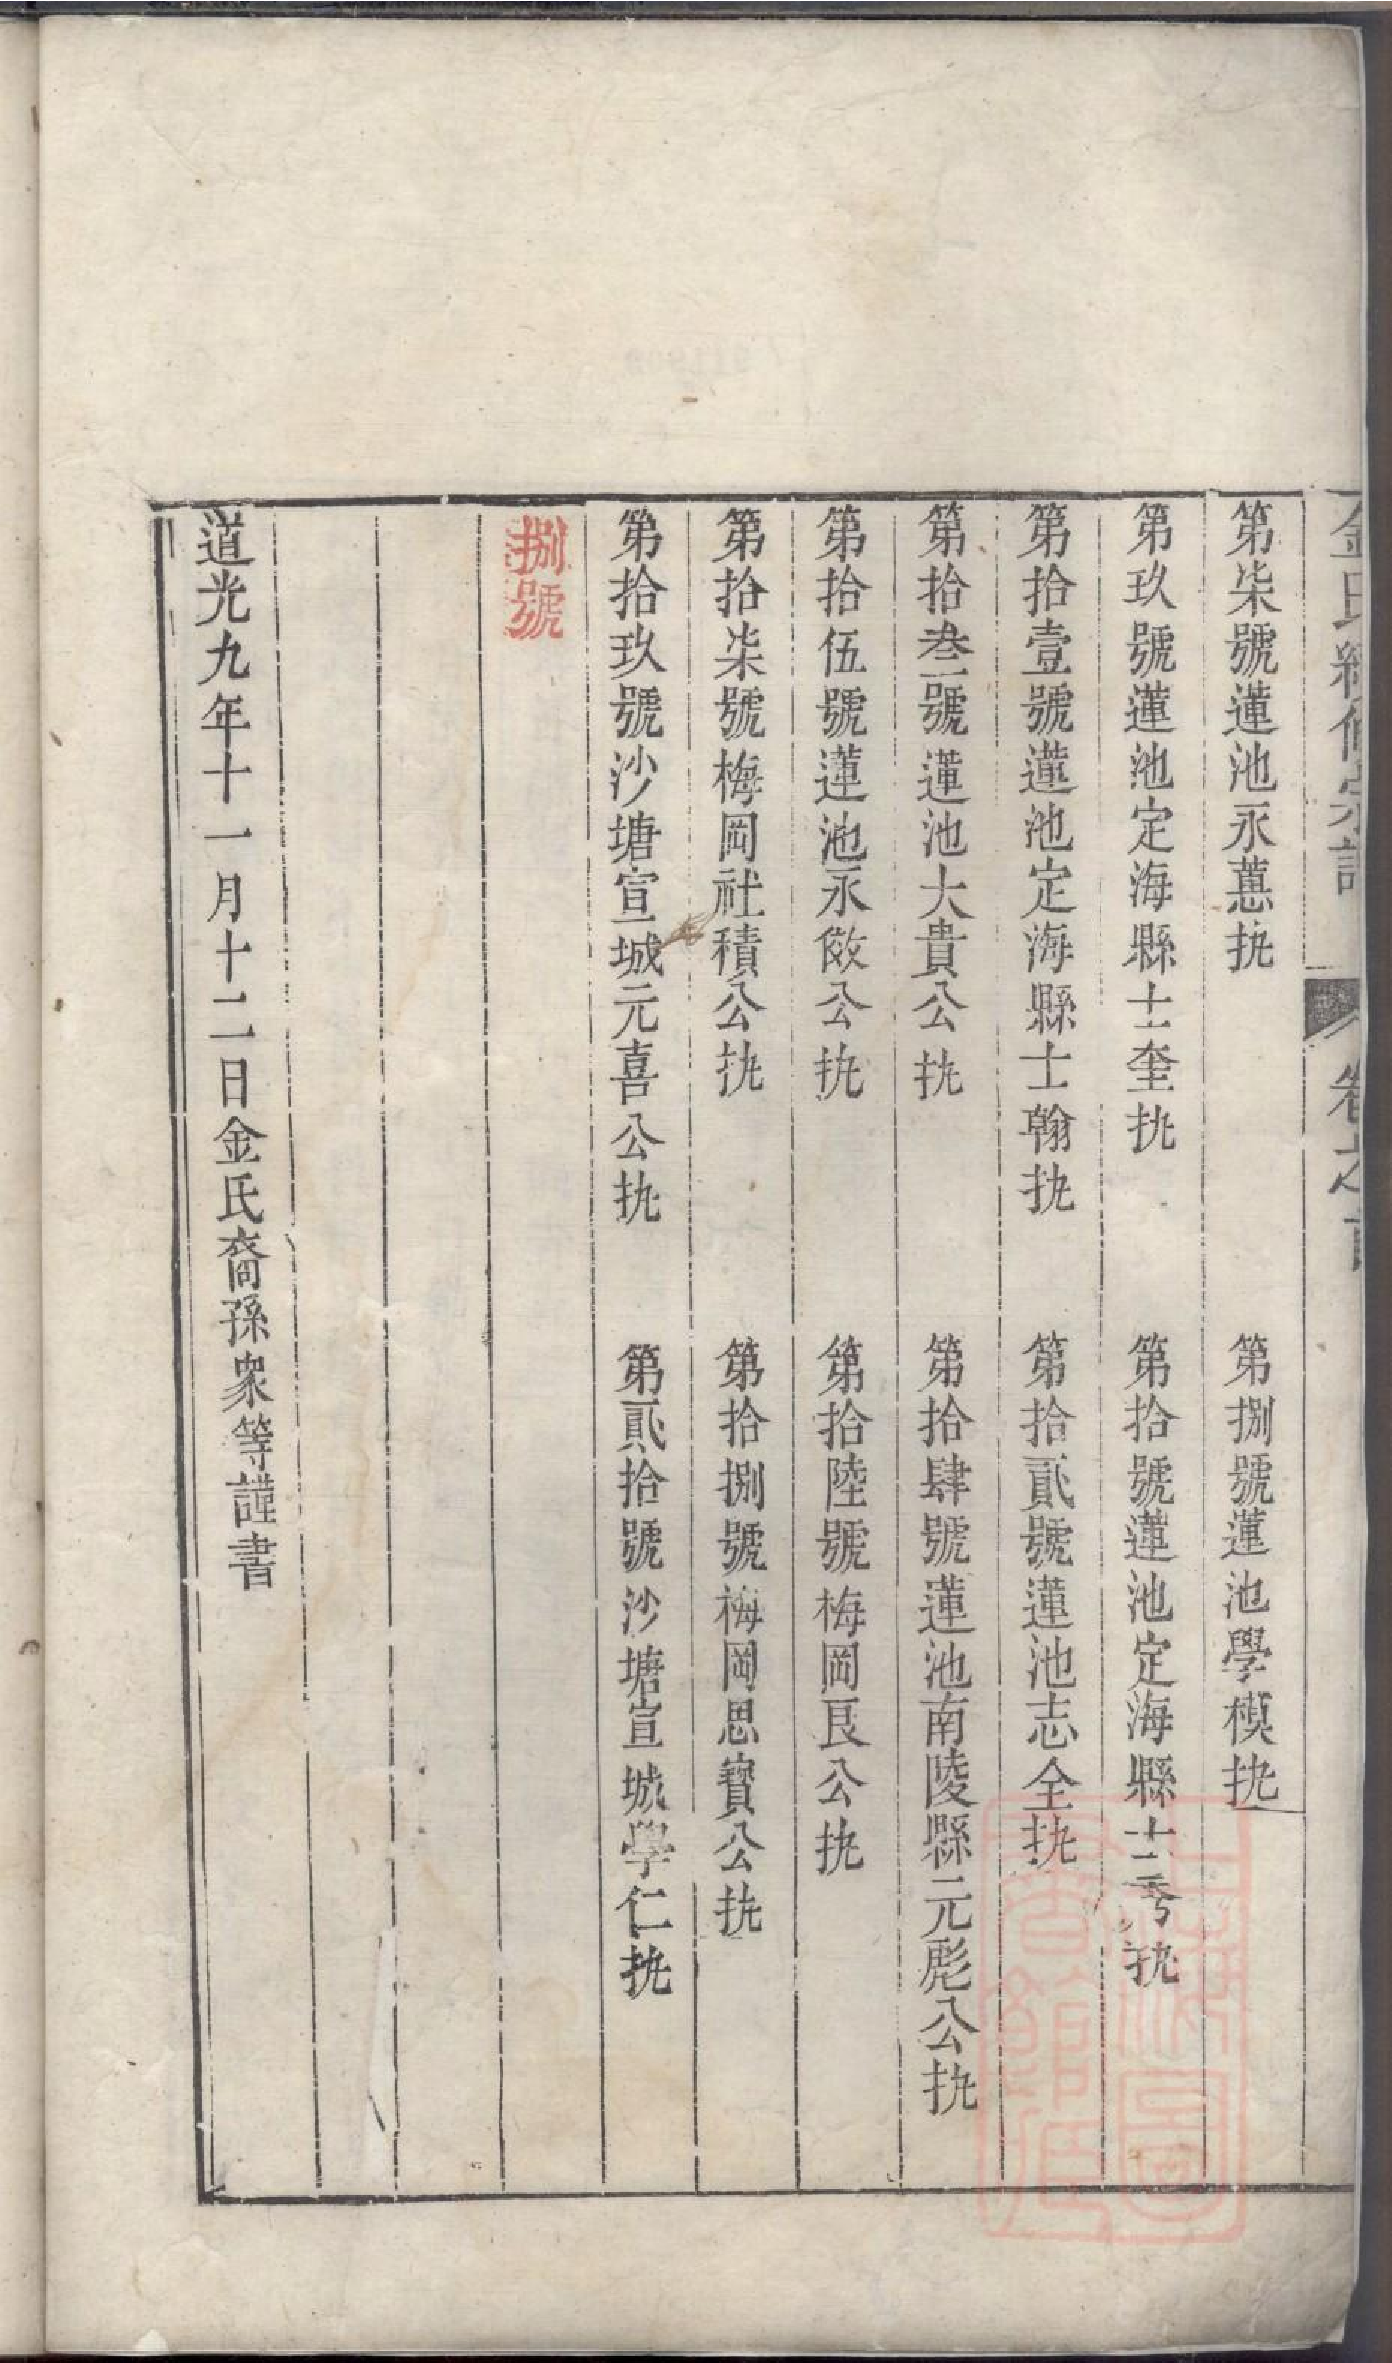 金氏續修宗譜 卷之首
第柒號蓮池永蕙执 第捌號蓮池學模执
第玖號蓮池定海縣士奎执 第拾號蓮池定海縣士秀执
第拾壹號蓮池定海縣士翰执 第拾貳號蓮池志全执
第拾叁號蓮池大貴公执 第拾肆號蓮池南陵縣元彪公执
第拾伍號蓮池永倣公执 第拾陸號梅岡艮公执
第拾柒號梅岡社積公执 第拾捌號梅岡思寳公执
第拾玖號沙塘宣城元喜公执 第貳拾號沙塘宣城學仁执
捌號
道光九年十一月十二日金氏裔孫衆等謹書
上海圖書館藏